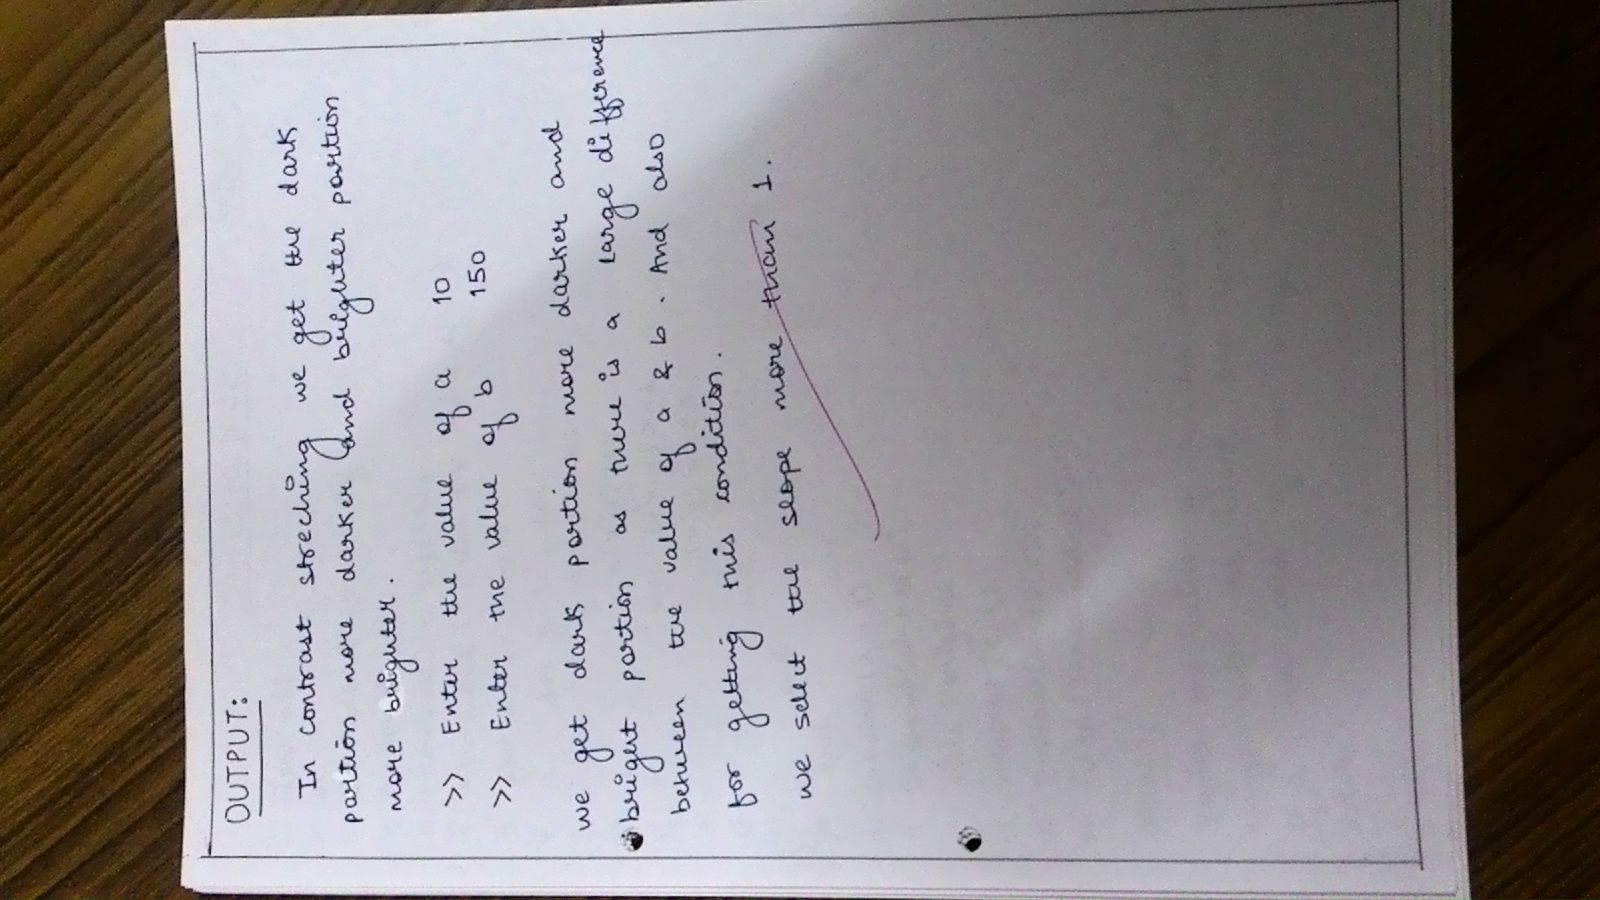 OUTPUT:
In contrast streching we get the dark
portion more darker and brighter portion
more brighter.
>> Enter the value of a 10
>> Enter the value of b 150
we get dark portion more darker and
bright portion as there is a large difference
between the value of a & b. And also
for getting this condition.
we select the slope more than 1.